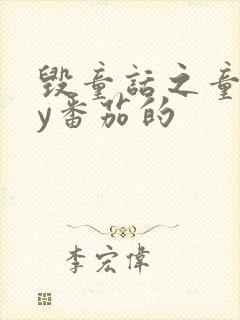 毁童话之童
y番茄的
李宏偉